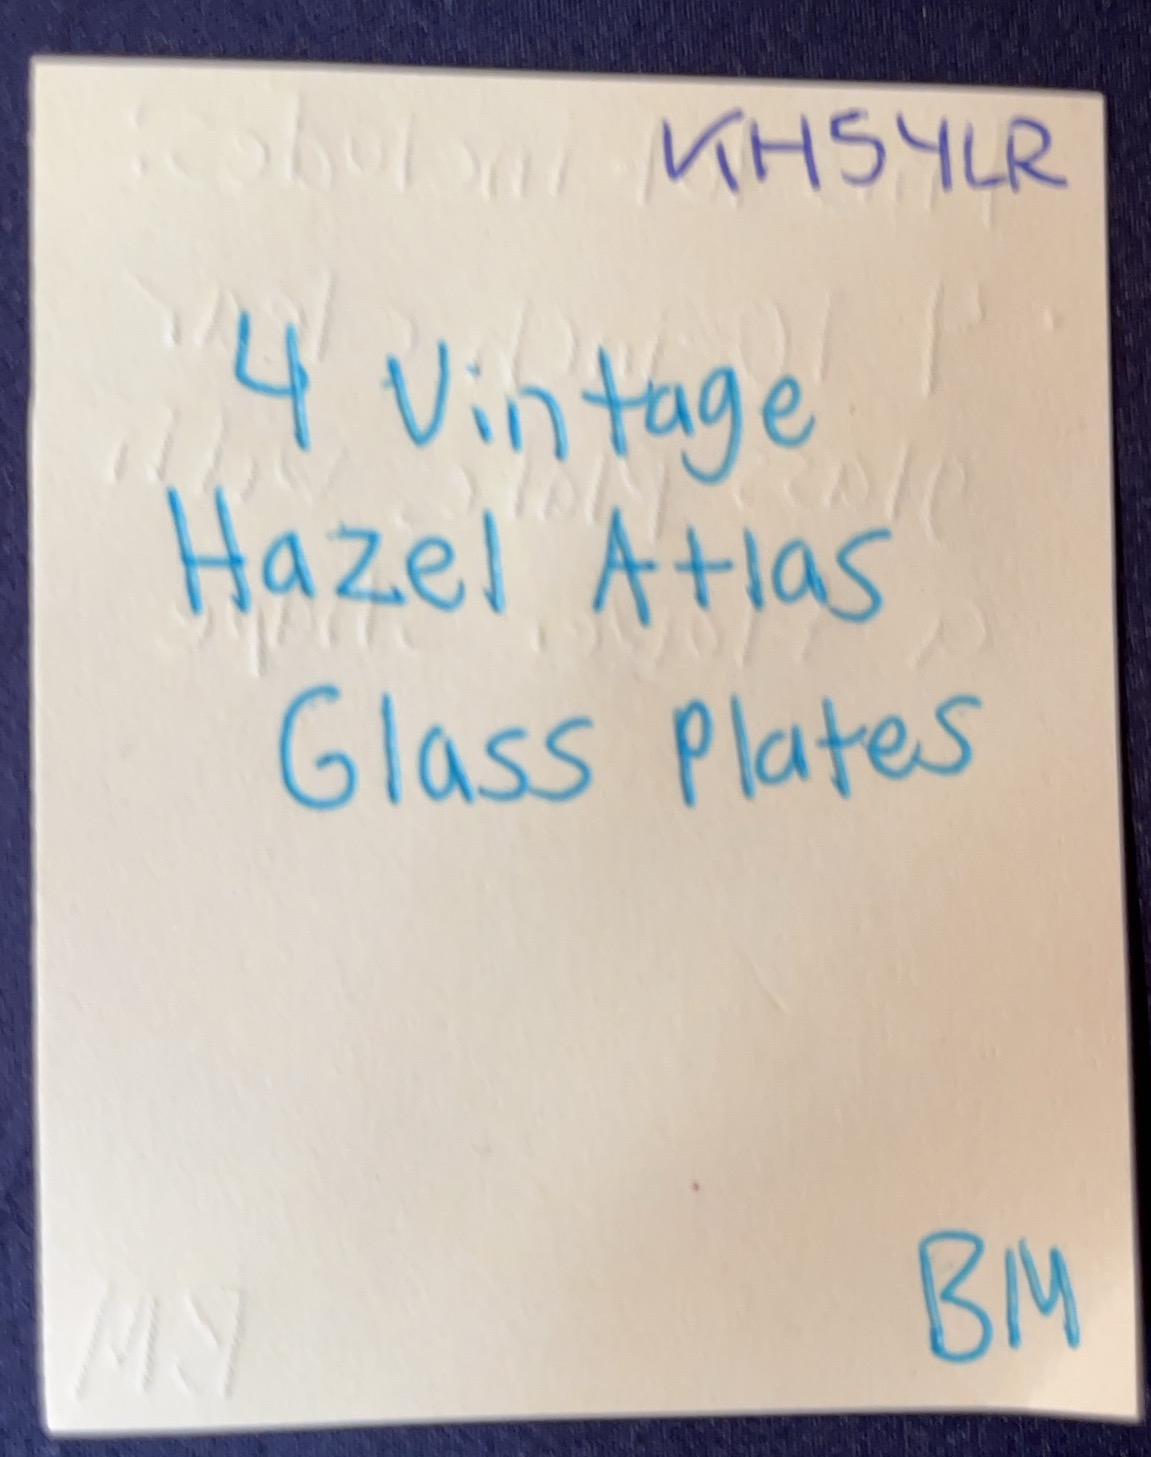 KH5YLR
4 Vintage
Hazel Atlas
Glass Plates
BM